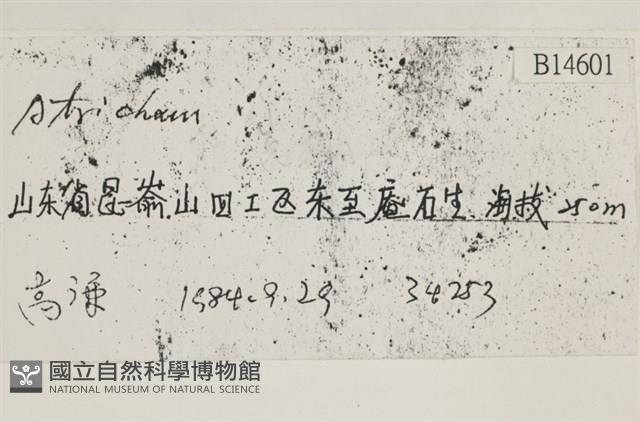 B14601
Atrichum
山东省昆嵛山四工区东至庵石生 海拔 250m
高谦 1984.9.29 34253
國立自然科學博物館
NATIONAL MUSEUM OF NATURAL SCIENCE